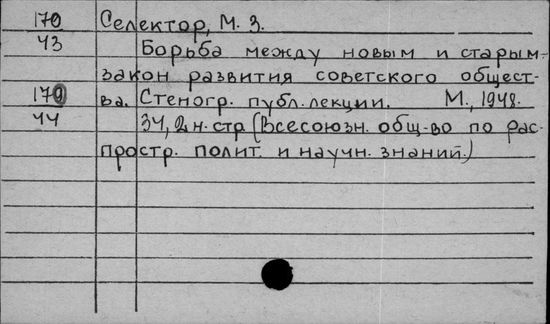 170 Селектор, М. З.
43 Борьба между новым и старым-
закон развития советского общест-
170 ва. Стеногр. публ. лекции. М., 1948.
44 34, 2 н. стр. (Всесоюзн. общ-во по рас-
простр. полит. и научн. знаний.)